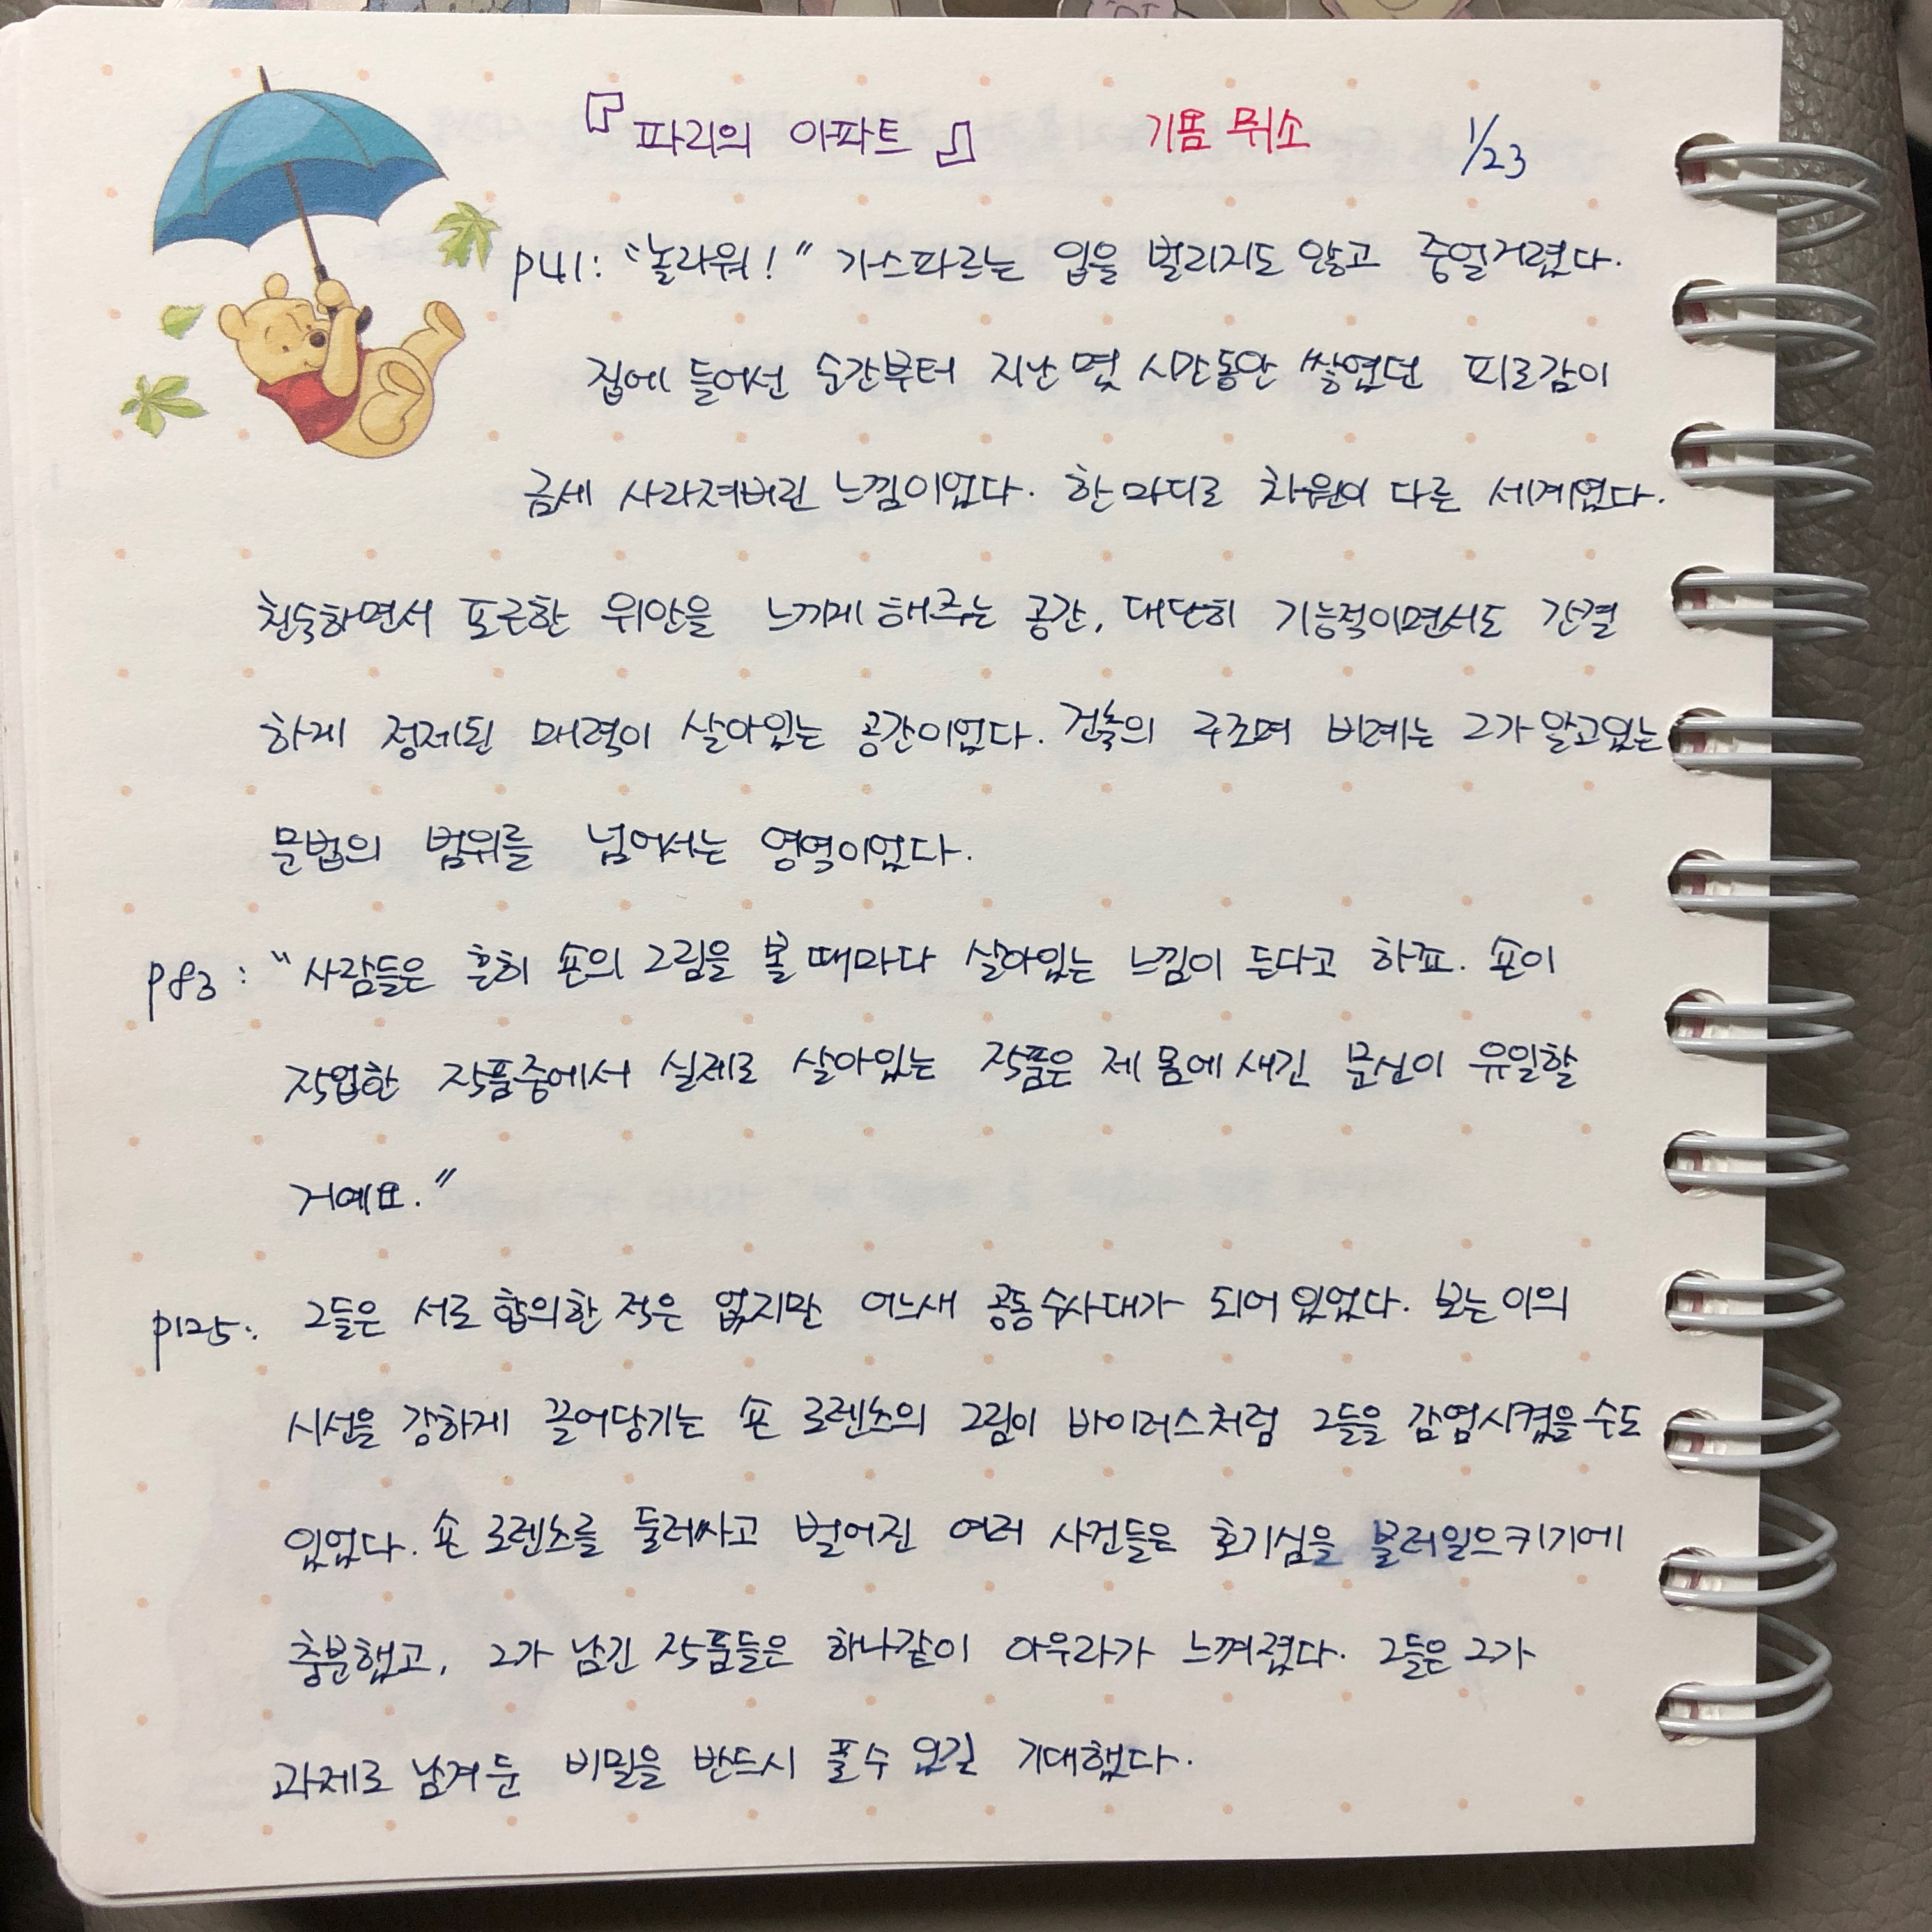 『파리의 아파트』 기욤 뮈소 1/23
p41: "놀라워!" 가스파르는 입을 벌리지도 않고 중얼거렸다.
집에 들어선 순간부터 지난 몇 시간동안 쌓였던 피로감이
금세 사라져버린 느낌이었다. 한마디로 차원이 다른 세계였다.
친숙하면서 포근한 위안을 느끼게 해주는 공간, 대단히 기능적이면서도 간결
하게 정제된 매력이 살아있는 공간이었다. 건축의 구조며 비례는 그가 알고있는
문법의 범위를 넘어서는 영역이었다.
p83: "사람들은 흔히 숀의 그림을 볼 때마다 살아있는 느낌이 든다고 하죠. 숀이
작업한 작품중에서 실제로 살아있는 작품은 제 몸에 새긴 문신이 유일할
거예요."
p125: 그들은 서로 합의한 적은 없지만 어느새 공동 수사대가 되어 있었다. 보는 이의
시선을 강하게 끌어당기는 숀 로렌소의 그림이 바이러스처럼 그들을 감염시켰을 수도
있었다. 숀 로렌소를 둘러싸고 벌어진 여러 사건들은 호기심을 불러일으키기에
충분했고, 그가 남긴 작품들은 하나같이 아우라가 느껴졌다. 그들은 그가
과제로 남겨둔 비밀을 반드시 풀수 있길 기대했다.